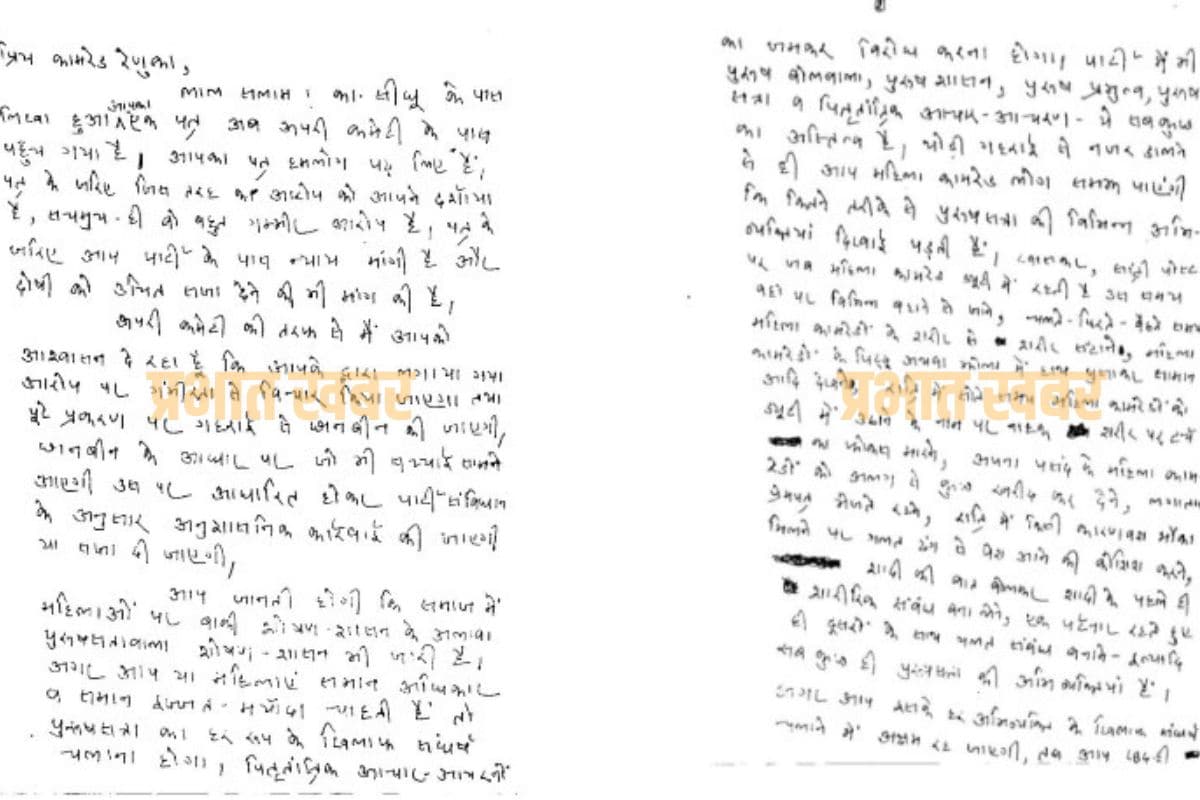 प्रिय कामरेड रेणुका,
लाल सलाम! का. सीधू के पास
लिखा हुआ आपका एक पत्र अब अपरी कमेटी के पास
पहुंच गया है, आपका पत्र हमलोग पढ़ लिए हैं,
पत्र के जरिए जिस तरह का आरोप को आपने दर्शाया
है, सचमुच-ही वो बहुत गम्भीर आरोप है, पत्र के
जरिए आप पार्टी के पास न्याय मांगी है और
दोषी को उचित सजा देने की भी मांग की है,
अपरी कमेटी की तरफ से मैं आपको
आश्वासन दे रहा हूँ कि आपके द्वारा लगाया गया
आरोप पर गंभीरता से विचार किया जाएगा तथा
पूरे प्रकरण पर गहराई से छानबीन की जाएगी,
छानबीन के आधार पर जो भी सच्चाई सामने
आएगी उस पर आधारित होकर पार्टी संविधान
के अनुसार अनुशासनिक कार्रवाई की जाएगी
या सजा दी जाएगी,
आप जानती होगी कि समाज में
महिलाओं पर बाकी शोषण-शासन के अलावा
पुरुषसत्तावाला शोषण-शासन भी जारी है,
अगर आप या महिलाएं समान अधिकार
व समान इज्जत-मर्यादा चाहती हैं तो
पुरुषसत्ता का हर रूप के खिलाफ संघर्ष
चलाना होगा, पितृतांत्रिक आचार-आचरणों
का जमकर विरोध करना होगा, पार्टी में भी
पुरुष बोलबाला, पुरुष शासन, पुरुष प्रभुत्व, पुरुष
सत्ता व पितृतांत्रिक आचार-आचरण - ये सबकुछ
का अस्तित्व है, थोड़ी गहराई से नजर डालने
से ही आप महिला कामरेड लोग समझ पाएंगी
कि कितने तरीके से पुरुषसत्ता की विभिन्न अभि-
व्यक्तियां दिखाई पड़ती हैं, खासकर, संतरी पोस्ट
पर जब महिला कामरेड ड्यूटी में रहती है उस समय
वहां पर विभिन्न बहाने से जाने, चलते-फिरते-बैठते समय
महिला कामरेडों के शरीर से शरीर सटाने, महिला
कामरेडों के पिट्ठू अथवा झोला में हाथ घुसाकर सामान
आदि देखने, रात्रि में सोते समय महिला कामरेडों को
ड्यूटी में उठाने के नाम पर नाहक शरीर पर टर्च
का फोकस मारने, अपना पसंद के महिला काम
रेडों को अलग से कुछ खरीद कर देने, लगातार
प्रेमपत्र भेजते रहने, रात्रि में किसी कारणवश मौका
मिलने पर गलत ढंग से पेश आने की कोशिश करने,
शादी की बात बोलकर शादी के पहले ही
शारीरिक संबंध बना लेने, एक पार्टनर रहते हुए
ही दूसरों के साथ गलत संबंध बनाने - इत्यादि
सब कुछ ही पुरुषसत्ता की अभिव्यक्तियां हैं।
अगर आप इसके हर अभिव्यक्ति के खिलाफ संघर्ष
चलाने में अक्षम रह जाएगी, तब आप
प्रभात खबर
प्रभात खबर